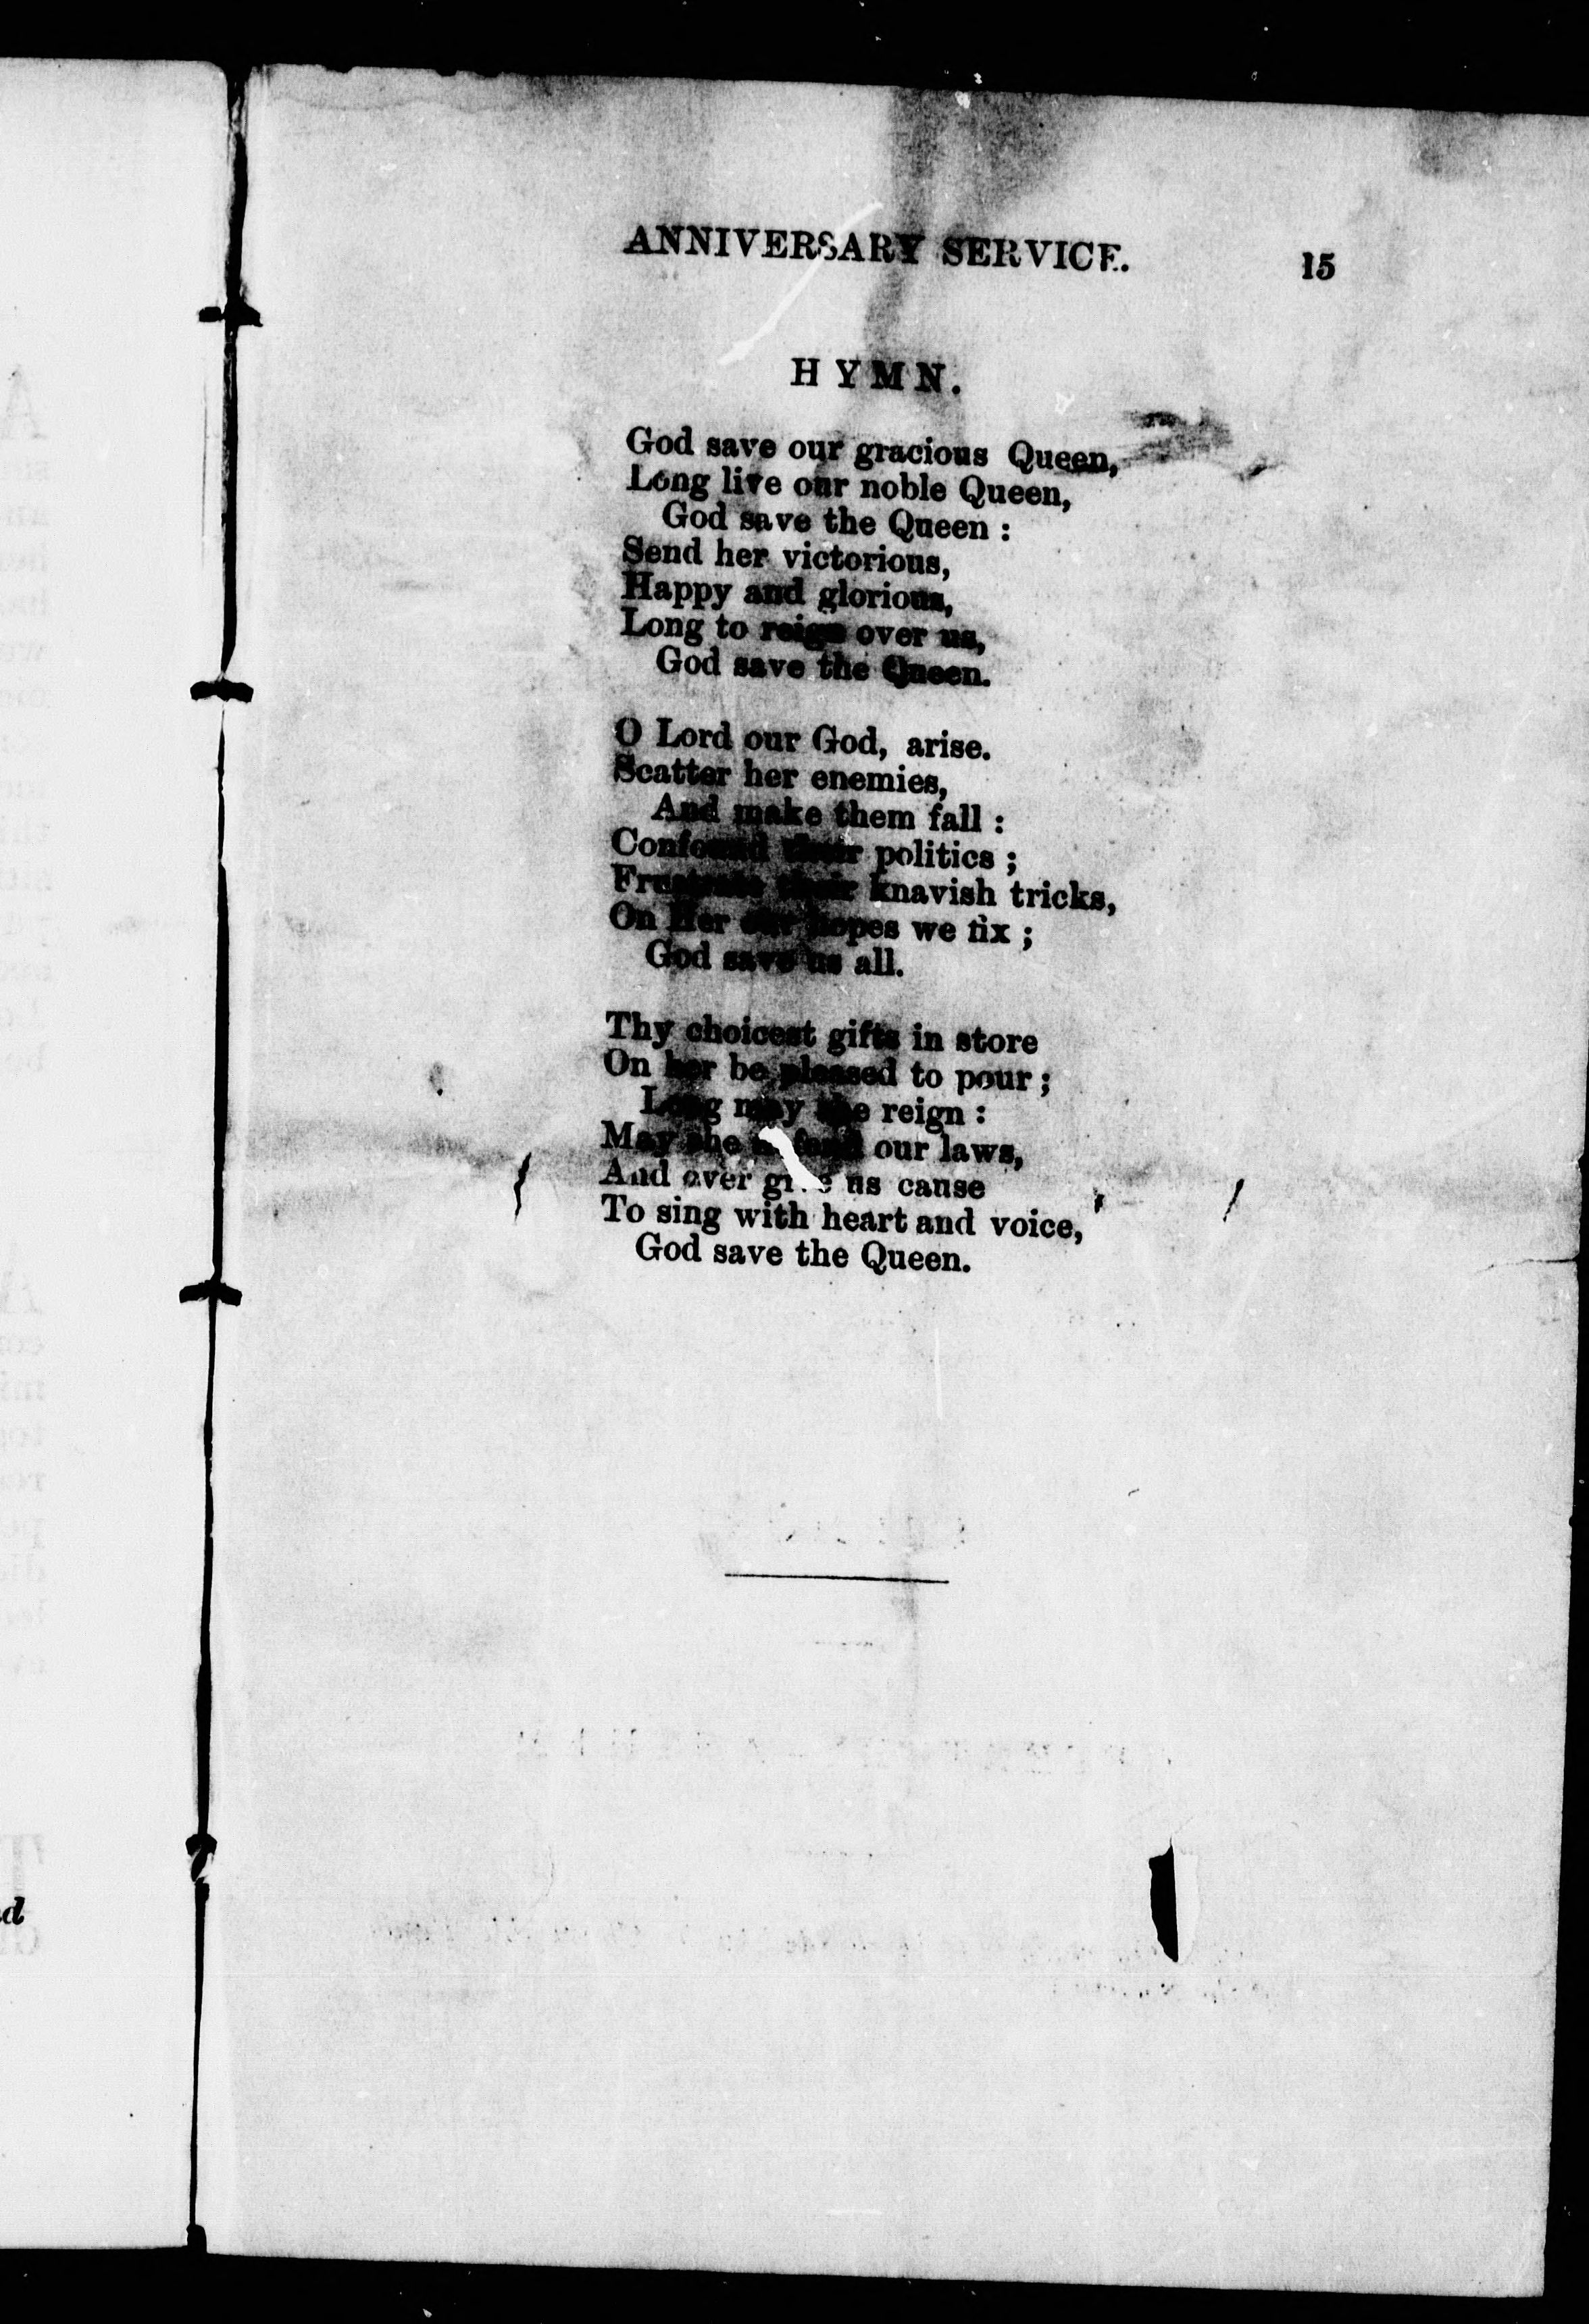 ANNIVERSARY SERVICE. 15
HYMN.
God save our gracious Queen,
Long live our noble Queen,
God save the Queen :
Send her victorious,
Happy and glorious,
Long to reign over us,
God save the Queen.
O Lord our God, arise.
Scatter her enemies,
And make them fall :
Confound their politics ;
Frustrate their knavish tricks,
On Her our hopes we fix ;
God save us all.
Thy choicest gifts in store
On her be pleased to pour ;
Long may she reign :
May she defend our laws,
And ever give us cause
To sing with heart and voice,
God save the Queen.